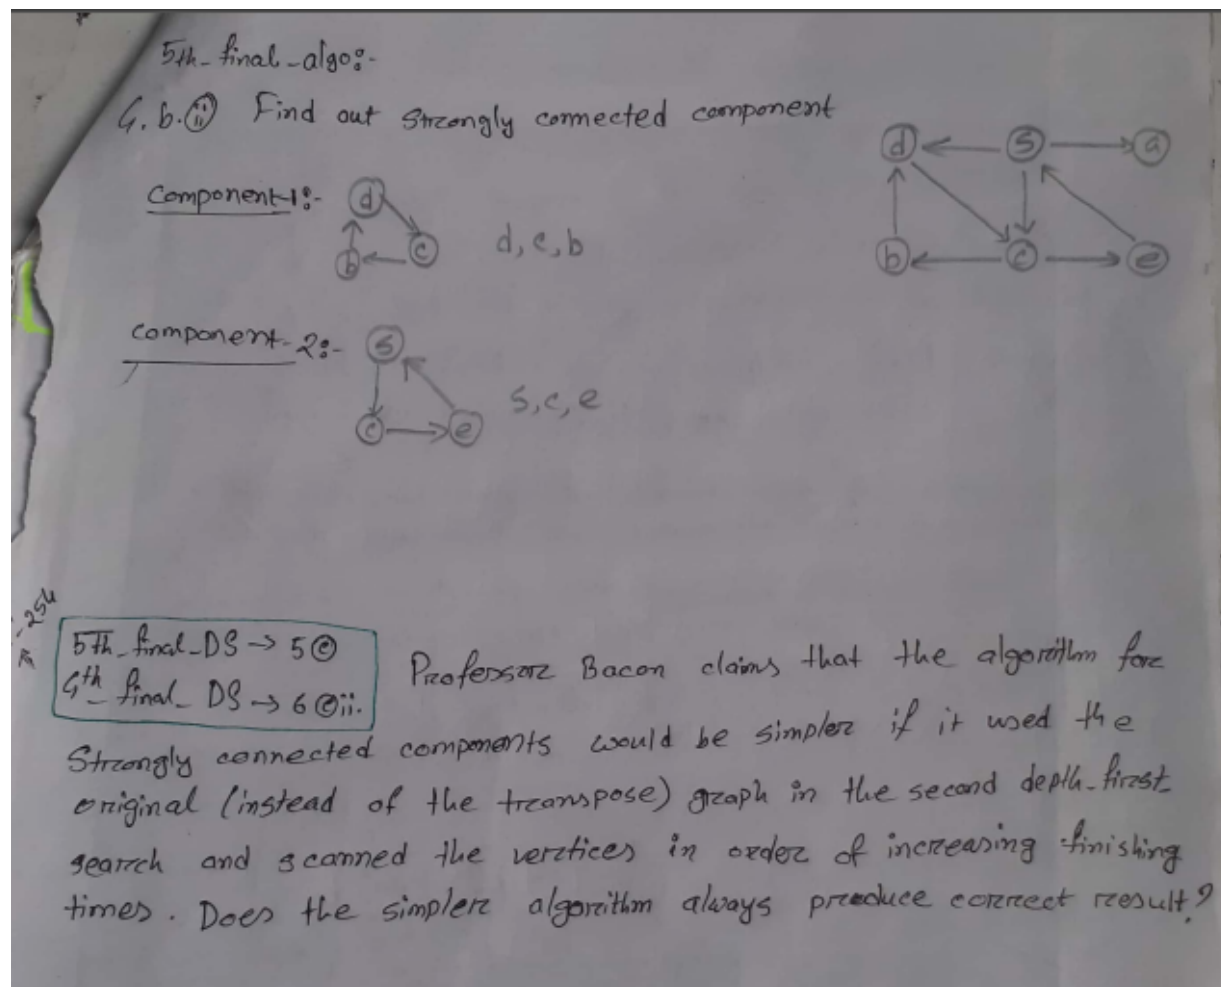 5th_final_algo:-
Find out strongly connected component
d s a
b c e
Component-1:-
d
b c
d, c, b
component-2:-
s
c e
s, c, e
254
5th_final_DS → 5 ©
4th_final_DS → 6 ©ii.
Professor Bacon claims that the algorithm for
Strongly connected components would be simpler if it used the
original (instead of the transpose) graph in the second depth-first
search and scanned the vertices in order of increasing finishing
times. Does the simpler algorithm always produce correct result?